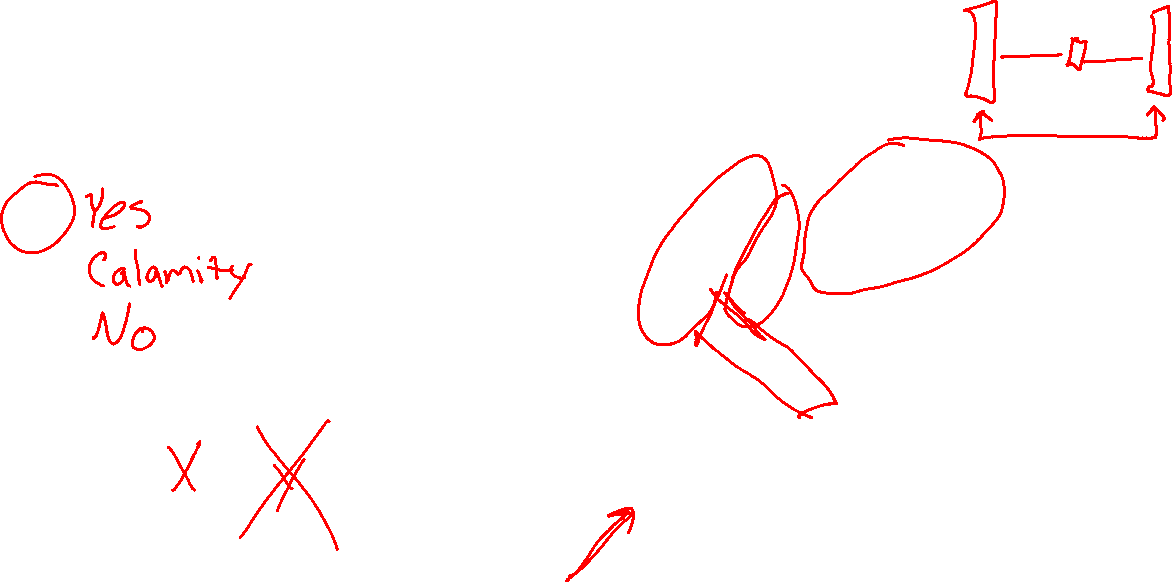 Yes
Calamity
No
X X